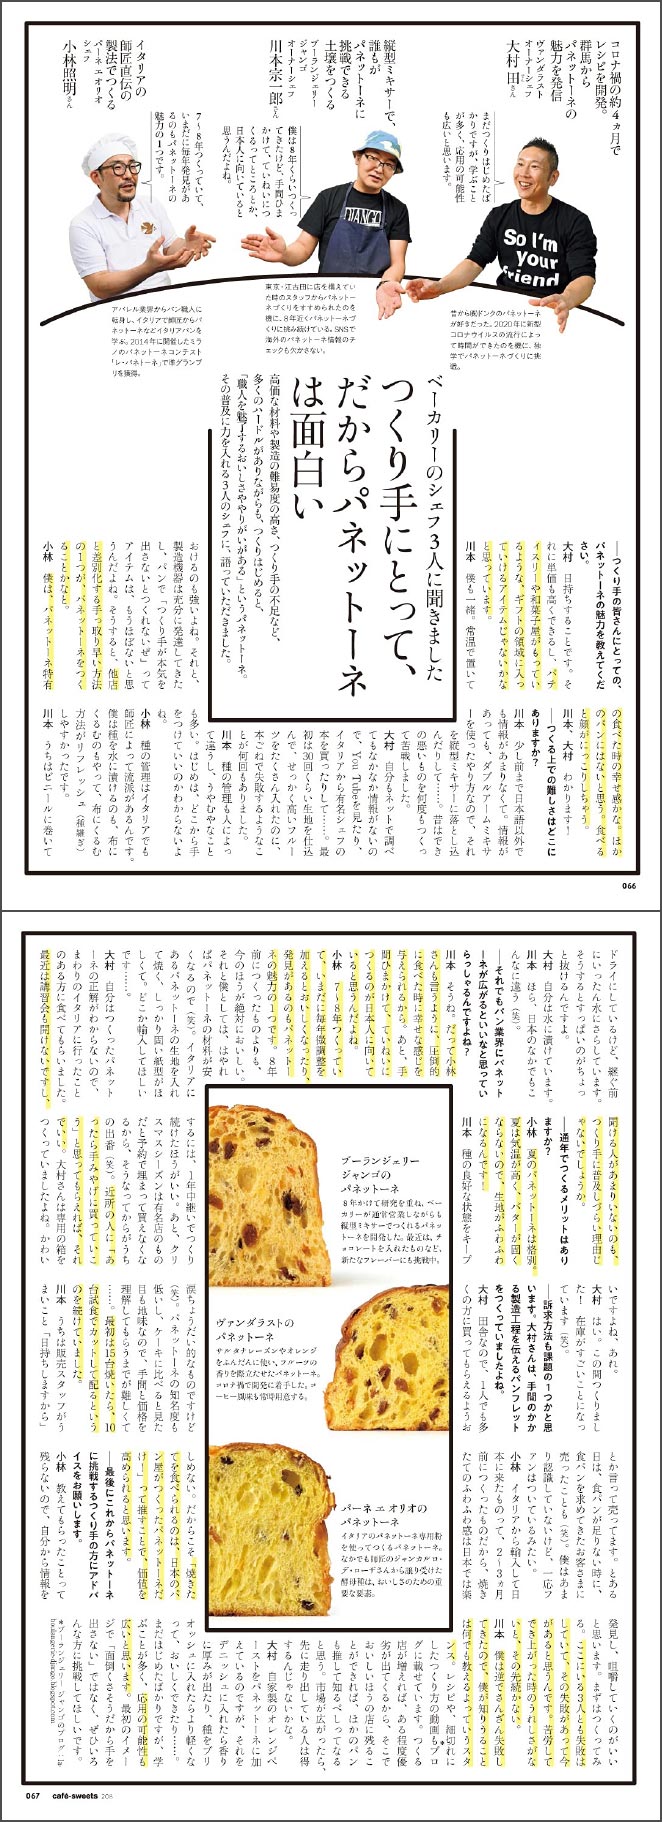 コロナ禍の約4ヵ月で
レシピを開発。
群馬から
パネットーネの
魅力を発信
ヴァンダラスト
オーナーシェフ
大村 田さん
まだつくりはじめたば
かりですが、学ぶこと
が多く、応用の可能性
も広いと思います。
縦型ミキサーで、
誰もが
パネットーネに
挑戦できる
土壌をつくる
ブーランジェリー
ジャンゴ
オーナーシェフ
川本宗一郎さん
僕は8年くらいつくっ
てきたけど、手間ひま
かけてていねいにつ
くるってところとか、
日本人に向いていると
思うんだよね。
イタリアの
師匠直伝の
製法でつくる
パーネ エ オリオ
シェフ
小林照明さん
7〜8年つくっていて、
いまだに毎年発見があ
るのもパネットーネの
魅力の1つです。
DJANGO
So I'm
your
friend
昔から脱ドンクのパネットーネ
が好きだった。2020年に新型
コロナウイルスの流行によっ
て時間ができたのを機に、独
学でパネットーネづくりに挑
戦。
東京・江古田に店を構えてい
た時のスタッフからパネットー
ネづくりをすすめられたのを
機に、8年近くパネットーネづ
くりに挑み続けている。SNSで
海外のパネットーネ情報のチ
ェックも欠かさない。
アパレル業界からパン職人に
転身し、イタリアで師匠からパ
ネットーネなどイタリアパンを
学ぶ。2014年に開催したミラ
ノのパネットーネコンテスト
「レ・パネトーネ」で準グランプ
リを獲得。
ベーカリーのシェフ3人に聞きました
つくり手にとって、
だからパネットーネ
は面白い
高価な材料や製造の難易度の高さ、つくり手の不足など、
多くのハードルがありながらも、つくりはじめると、
「職人を魅了するおいしさややりがいがある」というパネットーネ。
その普及に力を入れる3人のシェフに、語っていただきました。
――つくり手の皆さんにとっての、
パネットーネの魅力を教えてくだ
さい。
大村　日持ちすることです。そ
れに単価も高くできるし、パテ
ィスリーや和菓子屋がもってい
るような、ギフトの領域に入っ
ていけるアイテムじゃないかな
と思っています。
川本　僕も一緒。常温で置いて
おけるのも強いよね。それと、
製造機器は充分に発達してきた
し、パンで「つくり手が本気を
出さないとつくれないぜ」って
アイテムは、もうほぼないと思
うんだよね。そうすると、他店
と差別化する手っ取り早い方法
の1つが、パネットーネをつく
ることかなと。
小林　僕は、パネットーネ特有
の食べた時の幸せ感かな。ほか
のパンにはないと思う。食べる
と顔がにっこりしちゃう。
川本、大村　わかります！
――つくる上での難しさはどこに
ありますか？
川本　少し前まで日本語以外で
も情報があまりなくて。情報が
あっても、ダブルアームミキサ
ーを使ったやり方なので、それ
を縦型ミキサーに落とし込
んだりして……。昔はでき
の悪いものを何度もつくっ
て苦戦しました。
大村　自分もネットで調べ
てもなかなか情報がないの
で、You Tubeを見たり、
イタリアから有名シェフの
本を買ったりして……。最
初は30回くらい生地を仕込
んで、せっかく高いフルー
ツをたくさん入れたのに、
本ごねで失敗するようなこ
とが何回もありました。
川本　種の管理も人によっ
て違うし、うやむやなこと
も多い。はじめは、どこから手
をつけていいのかわからないよ
ね。
小林　種の管理はイタリアでも
師匠によって流派があるんです。
僕は種を水に漬けるのも、布に
くるむのもやって、布にくるむ
方法がリフレッシュ（種継ぎ）
しやすかったです。
川本　うちはビニールに巻いて
066
ドライにしているけど、継ぐ前
にいったん水にさらしています。
そうするとすっぱいのがちょっ
と抜けるんですよ。
大村　自分は水に漬けています。
川本　ほら、日本のなかでもこ
んなに違う（笑）。
――それでもパン業界にパネット
ーネが広がるといいなと思ってい
らっしゃるんですよね？
川本　そうね。だって小林
さんも言うように、圧倒的
に食べた時に幸せな感じを
与えられるから。あと、手
間ひまかけて、ていねいに
つくるのが日本人に向いて
いると思うんだよね。
小林　7〜8年つくってい
て、いまだに毎年微調整を
加えるとおいしくなったり、
発見があるのもパネットー
ネの魅力の1つです。8年
前につくったものよりも、
今のほうが絶対においしい。
それと僕としては、はやれ
ばパネットーネの材料が安
くなるので（笑）。イタリアに
あるパネットーネの生地を入れ
て焼く、しっかり固い紙型がほ
しくて。どこか輸入してほしい
です……。
大村　自分はつくったパネット
ーネの正解がわからないので、
まわりのイタリアに行ったこと
のある方に食べてもらいました。
最近は講習会も開けないですし、
聞ける人があまりいないのも、
つくり手に普及しづらい理由じ
ゃないでしょうか。
――通年でつくるメリットはあり
ますか？
小林　夏のパネットーネは格別。
夏は気温が高く、バターが固く
ならないので、生地がふわふわ
になるんです！
川本　種の良好な状態をキープ
するには、1年中継いでつくり
続けたほうがいい。あと、クリ
スマスシーズンは有名店のもの
だと予約で埋まって買えなくな
るから、そうなってからがうち
の出番（笑）。近所の人に「あ
ったら手みやげに買っていこ
う」と思ってもらえれば、それ
でいい。大村さんは専用の箱を
つくっていましたよね。かわい
いですよね、あれ。
大村　はい。この間つくりまし
た！　在庫がすごいことになっ
ています（笑）。
――訴求方法も課題の1つかと思
います。大村さんは、手間のかか
る製造工程を伝えるパンフレット
をつくっていましたよね。
大村　田舎なので、1人でも多
くの方に買ってもらえるようお
涙ちょうだい的なものですけど
（笑）。パネットーネの知名度も
低いし、ケーキに比べると見た
目も地味なので、手間と価格を
理解してもらうまでが難しくて
……。最初は15台焼いたら、10
台試食でカットして配るという
のを続けていました。
川本　うちは販売スタッフがう
まいこと「日持ちしますから」
とか言って売ってます。とある
日は、食パンが足りない時に、
食パンを求めてきたお客さまに
売ったことも（笑）。僕はあま
り認識していないけど、一応フ
ァンはついているみたい。
小林　イタリアから輸入して日
本に来たものって、2〜3ヵ月
前につくったものだから、焼き
たてのふわふわ感は日本では楽
しめない。だからこそ「焼きた
てを食べられるのは、日本のパ
ン屋がつくったパネットーネだ
け！」って推すことで、価値を
高められると思います。
――最後にこれからパネットーネ
に挑戦するつくり手の方にアドバ
イスをお願いします。
小林　教えてもらったことって
残らないので、自分から情報を
発見し、咀嚼していくのがいい
と思います。まずはつくってみ
る。ここにいる3人とも失敗は
していて、その失敗があって今
があると思うんです。苦労して
でき上がった時のうれしさがな
いと、その先続かない。
川本　僕は逆でさんざん失敗し
てきたので、僕が知りうること
は何でも教えるよっていうスタ
ンス。レシピや、細切れに
したつくり方の動画もブロ
グに載せています。つくる
店が増えれば、ある程度優
劣が出てくるから、そこで
おいしいほうの店に残るこ
とができれば、ほかのパン
も推して知るべしってなる
と思う。市場が広がったら、
先に走り出している人は得
するんじゃないかな。
大村　自家製のオレンジペ
ーストをパネットーネに加
えているのですが、それを
デニッシュに入れたら香り
に厚みが出たり、種をブリ
オッシュに入れたらより軽くな
って、おいしくできたり……。
まだはじめたばかりですが、学
ぶことが多く、応用の可能性も
広いと思います。最初のイメー
ジで「面倒くさそうだから手を
出さない」ではなく、ぜひいろ
んな方に挑戦してほしいです。
＊ブーランジェリー ジャンゴのブログ：la
boulangerie-django.blogspot.com
ブーランジェリー
ジャンゴの
パネットーネ
8年かけて研究を重ね、ベー
カリーが通常営業しながらも
縦型ミキサーでつくれるパネッ
トーネを開発した。最近は、チ
ョコレートを入れたものなど、
新たなフレーバーにも挑戦中。
ヴァンダラストの
パネットーネ
サルタナレーズンやオレンジ
をふんだんに使い、フルーツの
香りを際立たせたパネットーネ。
コロナ禍で開発に着手した。コ
ーヒー風味も常時用意する。
パーネ エ オリオの
パネットーネ
イタリアのパネットーネ専用粉
を使ってつくるパネットーネ。
なかでも師匠のジャンカルロ・
デ・ローザさんから譲り受けた
酵母種は、おいしさのための重
要な要素。
067 café-sweets 208